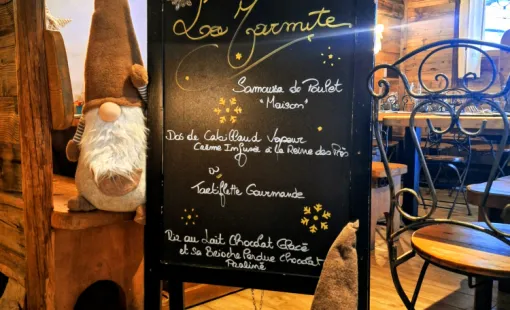 La Marmite
Samoussa de Poulet
"Maison"
Dos de Cabillaud Vapeur
Crème Infusée à la Reine des Prés
ou
Tartiflette Gourmande
Riz au Lait Chocolat Glacé
et sa Brioche Perdue Chocolat
Praliné